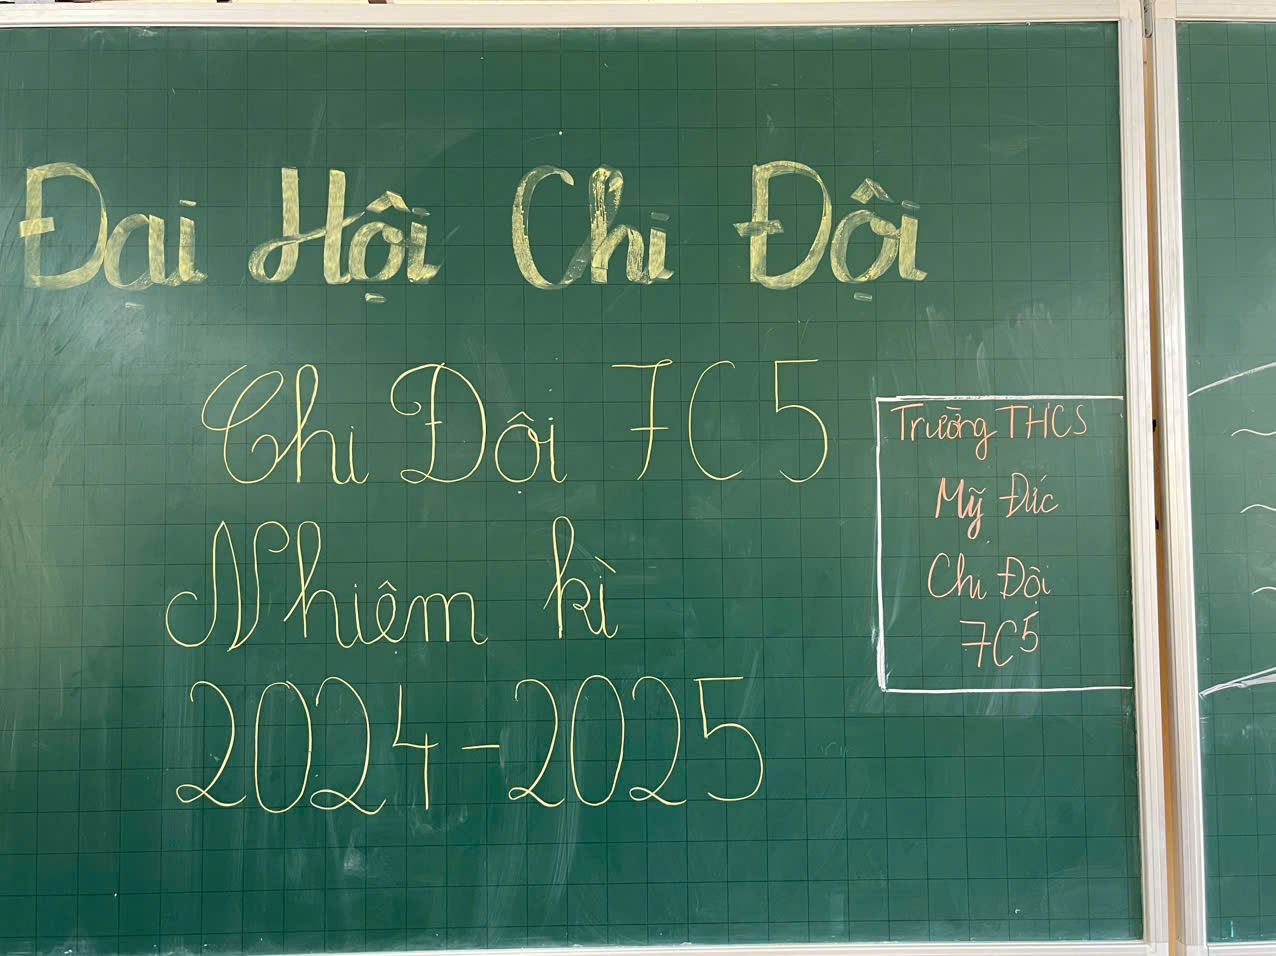 Đại Hội Chi Đội
Chi Đội 7C5
Nhiệm kì
2024-2025
Trường THCS
Mỹ Đức
Chi Đội
7C5